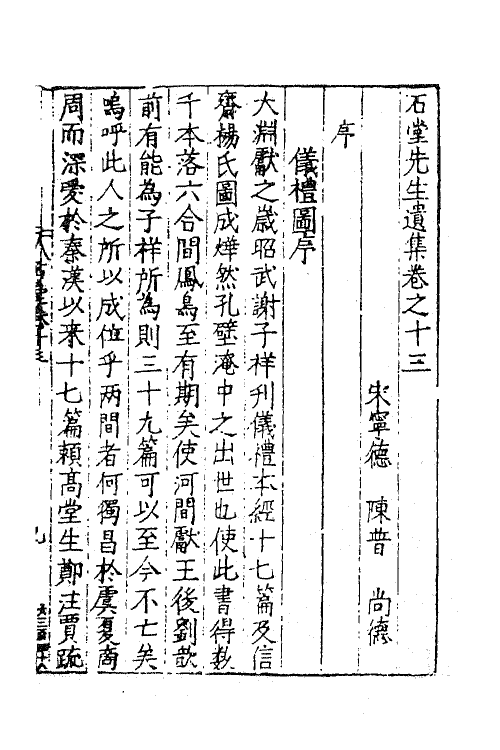 石堂先生遺集卷之十三
宋寧德 陳普 尚德
序
儀禮圖序
大淵獻之歲昭武謝子祥刋儀禮本經十七篇及信
齋楊氏圖成燁然孔壁淹中之出世也使此書得数
千本落六合間鳳鳥至有期矣使河間獻王後劉歆
前有能為子样所為則三十九篇可以至今不亡矣
嗚呼此人之所以成位乎两間者何獨昌於虞夏商
周而深憂於秦漢以来十七篇頼髙堂生鄭注賈疏